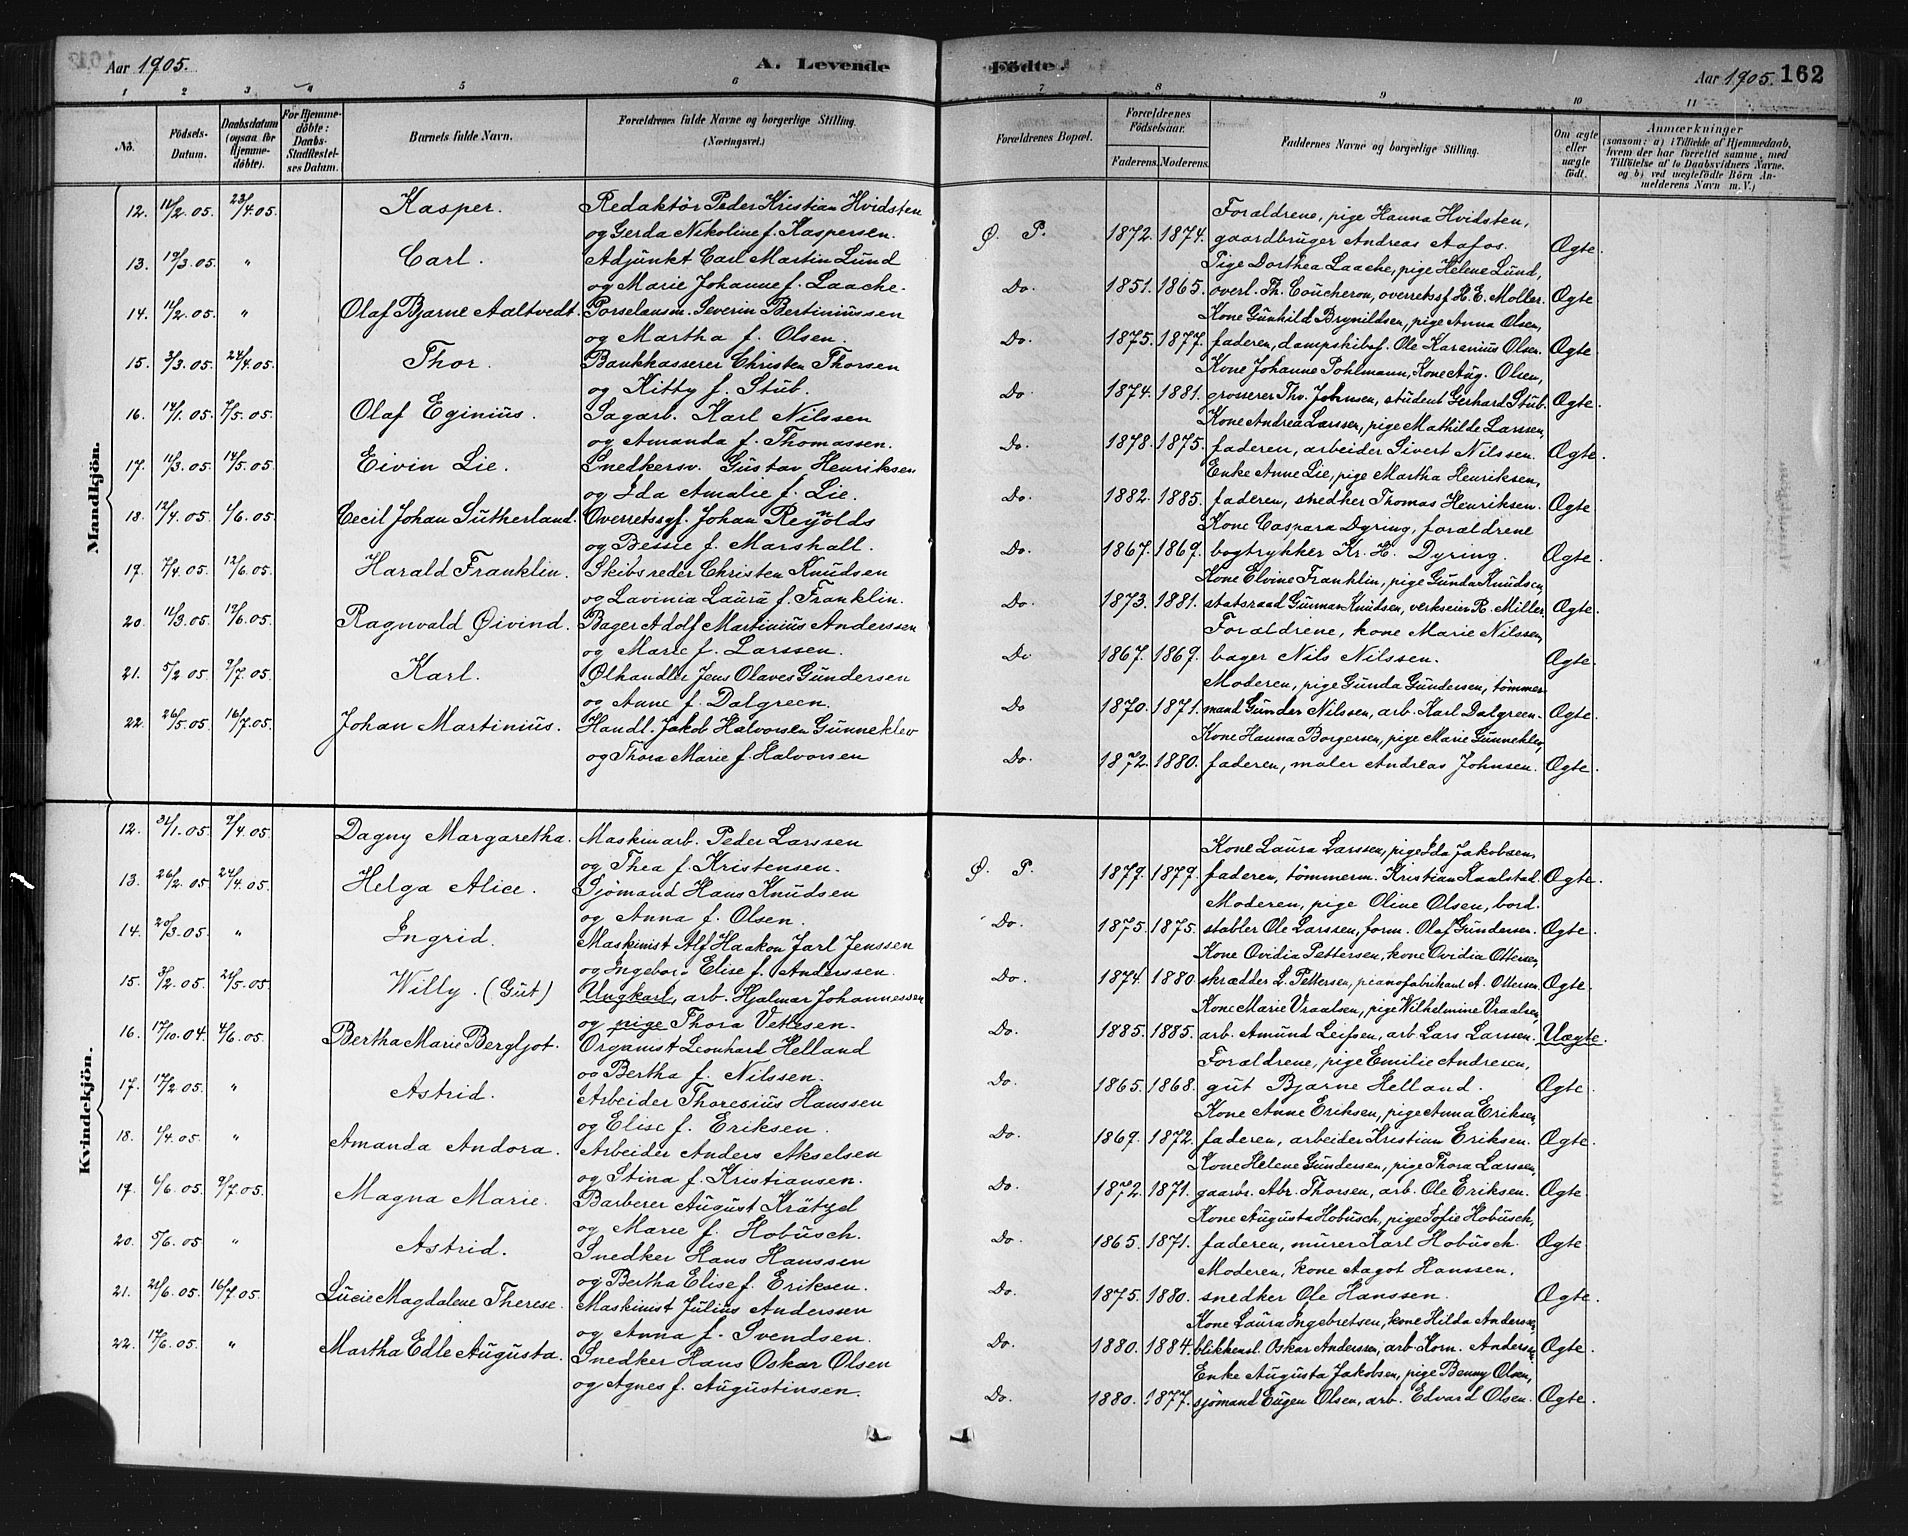 Aar 1905.
A. Levende
Födte.
Aar 1905. 162
1 2 3 4 5 6 7 8 9 10 11
No.
Födsels-Datum.
Daabsdatum (ogsaa for Hjemme-döbte).
For Hjemme-döbte: Daabs-Stadfæstel-ses Datum.
Barnets fulde Navn.
Forældrenes fulde Navne og borgerlige Stilling. (Næringsvei.)
Forældrenes Bopæl.
Forældrenes Födselsaar.
Faderens. Moderens.
Faddernes Navne og borgerlige Stilling.
Om ægte eller uægte födt.
Anmærkninger
(saasom: a) i Tilfælde af Hjemmedaab, hvem der har forrettet samme, med Tilföielse af to Daabsvidners Navne, og b) ved uægtefödte Börn An-melderens Navn m. V.)
Mandkjön.
12. 11/2.05. 23/4.05. Kasper. Redaktör Peder Kristian Hvidsten
og Gerda Nikoline f. Kaspersen.
Ø. P. 1872. 1874. Forældrene, pige Hanna Hvidsten,
gaardbruger Andreas Aafos. Ægte.
13. 19/3.05. " Carl. Adjunkt Carl Martin Lund
og Marie Johanne f. Laache.
Do. 1851. 1865. Pige Dorthea Laache, pige Helene Lund,
overl. Th. Coucheron, overretssf. H. E. Moller. Ægte
14. 11/2.05. " Olaf Bjarne Aaltvedt. Porselansm. Severin Bertiniussen
og Martha f. Olsen.
Do. 1875. 1877. Kone Gunhild Brynildsen, pige Anna Olsen,
faderen, dampskibsf. Ole Karenius Olsen. Ægte.
15. 3/3.05. 24/4.05. Thor. Bankkasserer Christen Thorsen
og Kitty f. Stub.
Do. 1874. 1881. Kone Johanne Pohlmann, Kone Aug. Olsen,
grosserer Thv. Johnsen, student Gerhard Stub. Ægte.
16. 14/1.05. 7/5.05. Olaf Eginius. Sagarb. Karl Nilssen
og Amanda f. Thomassen.
Do. 1878. 1875. Kone Andrea Larssen, pige Mathilde Larssen,
faderen, arbeider Sivert Nilssen. Ægte.
17. 11/3.05. 14/5.05. Eivin Lie. Snedkersv. Gustav Henriksen
og Ida Amalie f. Lie.
Do. 1882. 1885. Enke Anne Lie, pige Martha Henriksen,
faderen, snedker Thomas Henriksen. Ægte
18. 12/4.05. 1/6.05. Cecil Johan Sutherland. Overretssgf. Johan Reynolds
og Bessie f. Marshall.
Do. 1867. 1869. Kone Caspara Dyring, forældrene
bogtrykker Kr. H. Dyring. Ægte.
19. 7/4.05. 12/6.05. Harald Franklin. Skibsreder Christen Knudsen
og Lavinia Laura f. Franklin.
Do. 1873. 1881. Kone Elvine Franklin, pige Gunda Knudsen,
statsraad Gunnar Knudsen, verkseier R. Miller. Ægte.
20. 11/3.05. 12/6.05. Ragnvald Øivind. Bager Adolf Martinius Anderssen
og Marie f. Larssen.
Do 1867. 1869. Forældrene, kone Marie Nilssen,
bager Nils Nilssen. Ægte.
21. 5/2 05. 9/7.05. Karl. Ølhandler Jens Olaves Gundersen
og Anne f. Dalgreen.
Do 1870. 1871. Moderen, pige Gunda Gundersen, tömmer
mand Gunder Nilssen, arb. Karl Dalgreen. Ægte.
22. 26/5.05. 16/7.05. Johan Martinius. Handl. Jakob Halvorsen Gunneklev
og Thora Marie f. Halvorsen
Do. 1872. 1880. Kone Hanna Borgersen, pige Marie Gunneklev,
faderen, maler Andreas Johnsen. Ægte.
Kvindekjön.
12. 31/1.05. 9/4.05. Dagny Margaretha. Maskinarb. Peder Larssen
og Thea f. Kristensen.
Ø. P. 1877. 1879. Kone Laura Larssen, pige Ida Jakobsen,
faderen, tömmerm. Kristian Kaalstad. Ægte.
13. 26/2.05. 24/4.05. Helga Alice. Sjömand Hans Knudsen
og Anna f. Olsen.
Do. 1875. 1875. Moderen, pige Oline Olsen, bord.
stabler Ole Larssen, form. Olaf Gundersen. Ægte.
14. 20/3.05. " Ingrid. Maskinist Alf Haakon Jarl Jenssen
og Ingeborg Elise f. Anderssen.
Do. 1874. 1880. Kone Ovidia Pettersen, kone Ovidia Ottersen,
skrædder L. Pettersen, pianofabrikant A. Ottersen. Ægte.
15. 3/2.05. 21/5.05. Willy. (Gut) Ungkarl, arb. Hjalmar Johannessen
og pige Thora Vettesen.
Do. 1885. 1885. Kone Marie Vraalsen, pige Wilhelmine Vraalsen,
arb. Amund Leifsen, arb. Lars Larssen. Uægte.
16. 17/10.04. 4/6.05. Bertha Marie Bergljot. Organist Leonhard Helland
og Bertha f. Nilssen.
Do. 1865. 1868. Forældrene, pige Emilie Andresen,
gut Bjarne Helland. Ægte.
17. 17/2.05. " Astrid. Arbeider Thoresius Hanssen
og Elise f. Eriksen.
Do. 1869. 1872. Kone Anne Eriksen, pige Anna Eriksen,
faderen, arbeider Kristian Eriksen. Ægte.
18. 1/4.05. " Amanda Andora. Arbeider Anders Akselsen
og Stina f. Kristiansen.
Do. 1872. 1871. Kone Helene Gundersen, pige Thora Larssen,
gaardbr. Abr. Thorsen, arb. Ole Eriksen. Ægte.
19. 6/6.05. 9/7.05. Magna Marie. Barberer August Krätzel
og Marie f. Hobusch.
Do. 1865. 1871. Kone Augusta Hobusch, pige Sofie Hobusch,
faderen, murer Karl Hobusch. Ægte.
20. 5/6.05 " Astrid. Snedker Hans Hanssen
og Bertha Elise f. Eriksen.
Do. 1875. 1880. Moderen, kone Aagot Hanssen,
snedker Ole Hanssen. Ægte.
21. 21/6.05. 16/7.05. Lucie Magdalene Therese. Maskinist Julius Andersen
og Anna f. Svendsen.
Do. 1880. 1884. Kone Laura Ingebretsen, kone Hilda Andersen,
blikkensl. Oskar Anderssen, arb. Korn. Andersen. Ægte.
22. 17/6.05. " Martha Edle Augusta. Snedker Hans Oskar Olsen
og Agnes f. Augustinsen.
Do. 1880. 1877. Enke Augusta Jakobsen, pige Benny Olsen,
sjömand Eugen Olsen, arb. Edvard Olsen. Ægte.